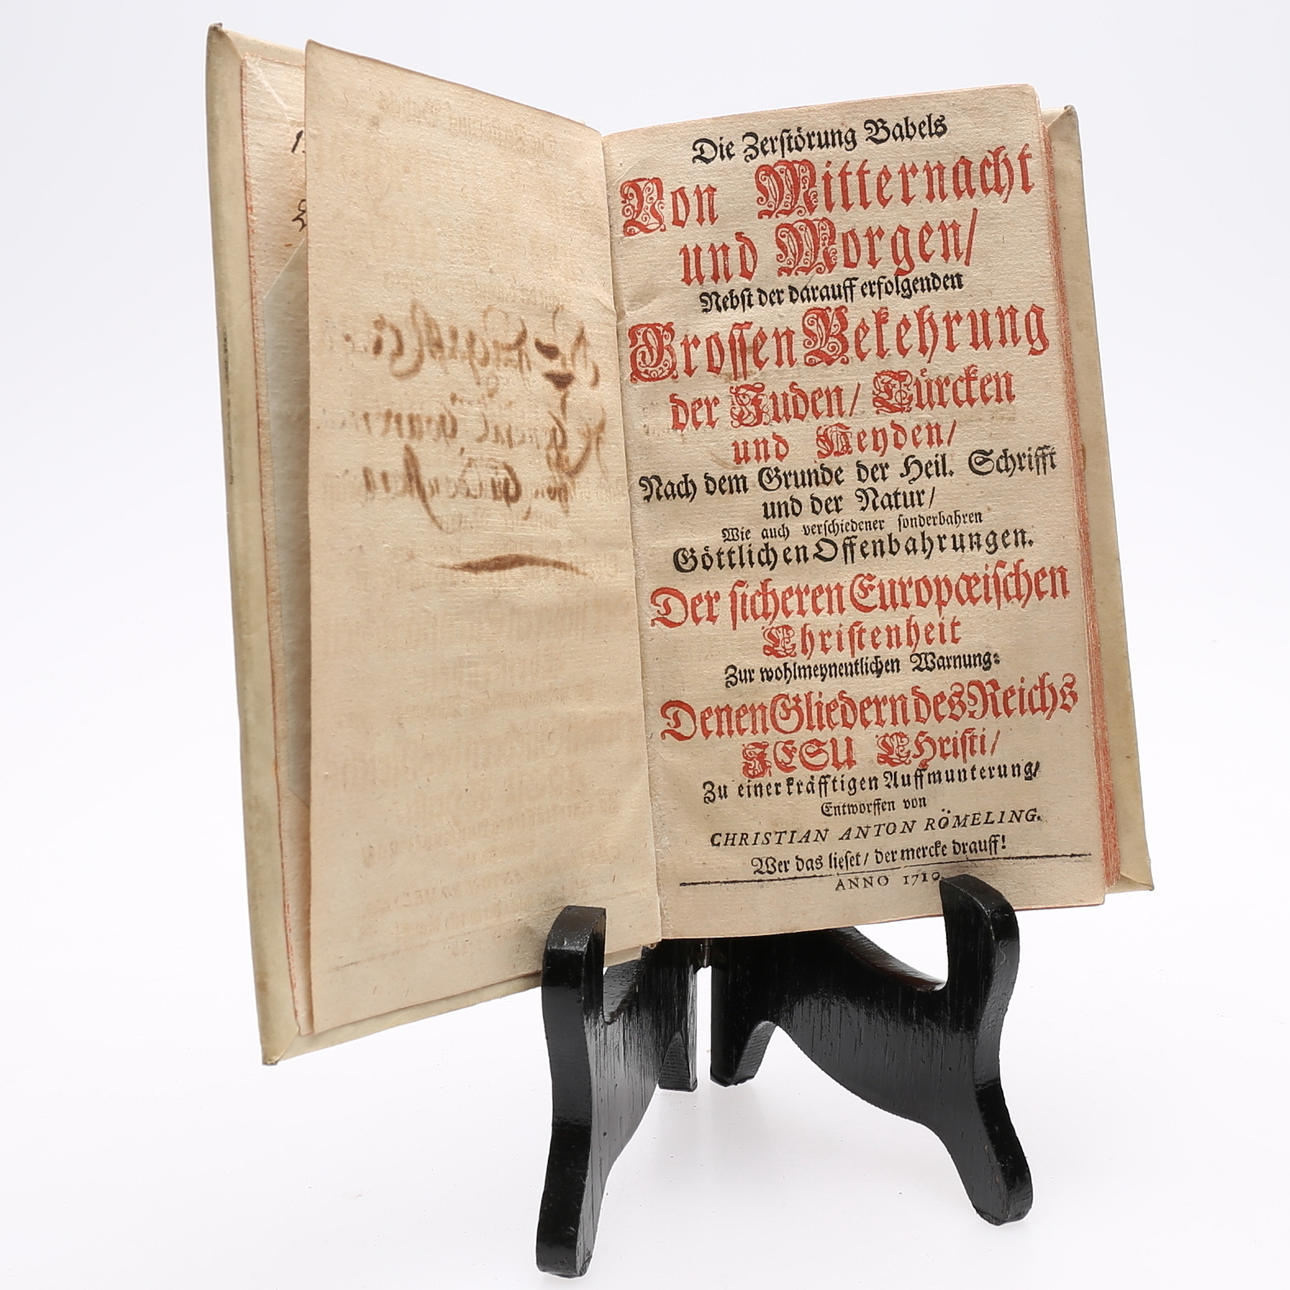 Die Zerstörung Babels
Von Mitternacht
und Morgen/
Nebst der darauff erfolgenden
Grossen Bekehrung
der Juden/ Türcken
und Heyden/
Nach dem Grunde der Heil. Schrifft
und der Natur/
Wie auch verschiedener sonderbahren
Göttlichen Offenbahrungen.
Der sicheren Europæischen
Christenheit
Zur wohlmeynentlichen Warnung:
Denen Gliedern des Reichs
JESU CHristi/
Zu einer kräfftigen Auffmunterung/
Entworffen von
CHRISTIAN ANTON RÖMELING.
Wer das lieset/ der mercke drauff!
ANNO 1710